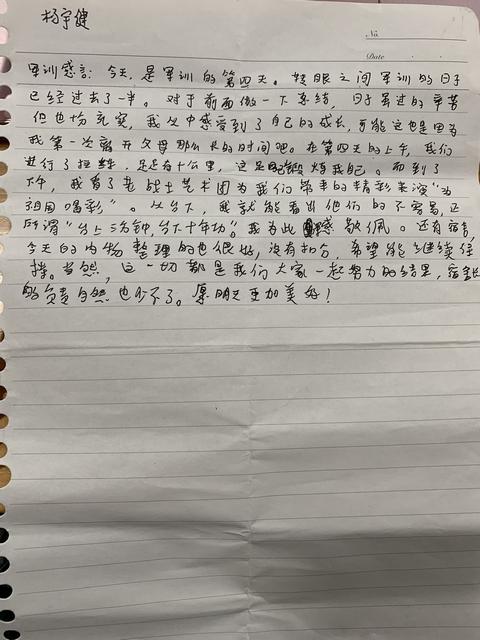 杨宇健
No.
Date
军训感言：今天，是军训的第四天。转眼之间军训的日子
已经过去了一半。对于前面做一下总结，日子虽过的辛苦
但也恰充实，我从中感受到了自己的成长，可能这也是因为
我第一次离开父母那么长的时间吧。在第四天的上午，我们
进行了拉练，足足有十公里，这足够锻炼我自己。而到了
下午，我看了老战士艺术团为我们带来的精彩表演“为
祖国喝彩”。从台下，我就能看出他们的不容易，正
所谓“台上三分钟，台下十年功”。我为此感敬佩。还有宿舍，
今天的内物整理的也很好，没有扣分，希望能继续保
持。当然，这一切都是我们大家一起努力的结果，宿舍长
的负责自然也少不了。愿明天更加美好！